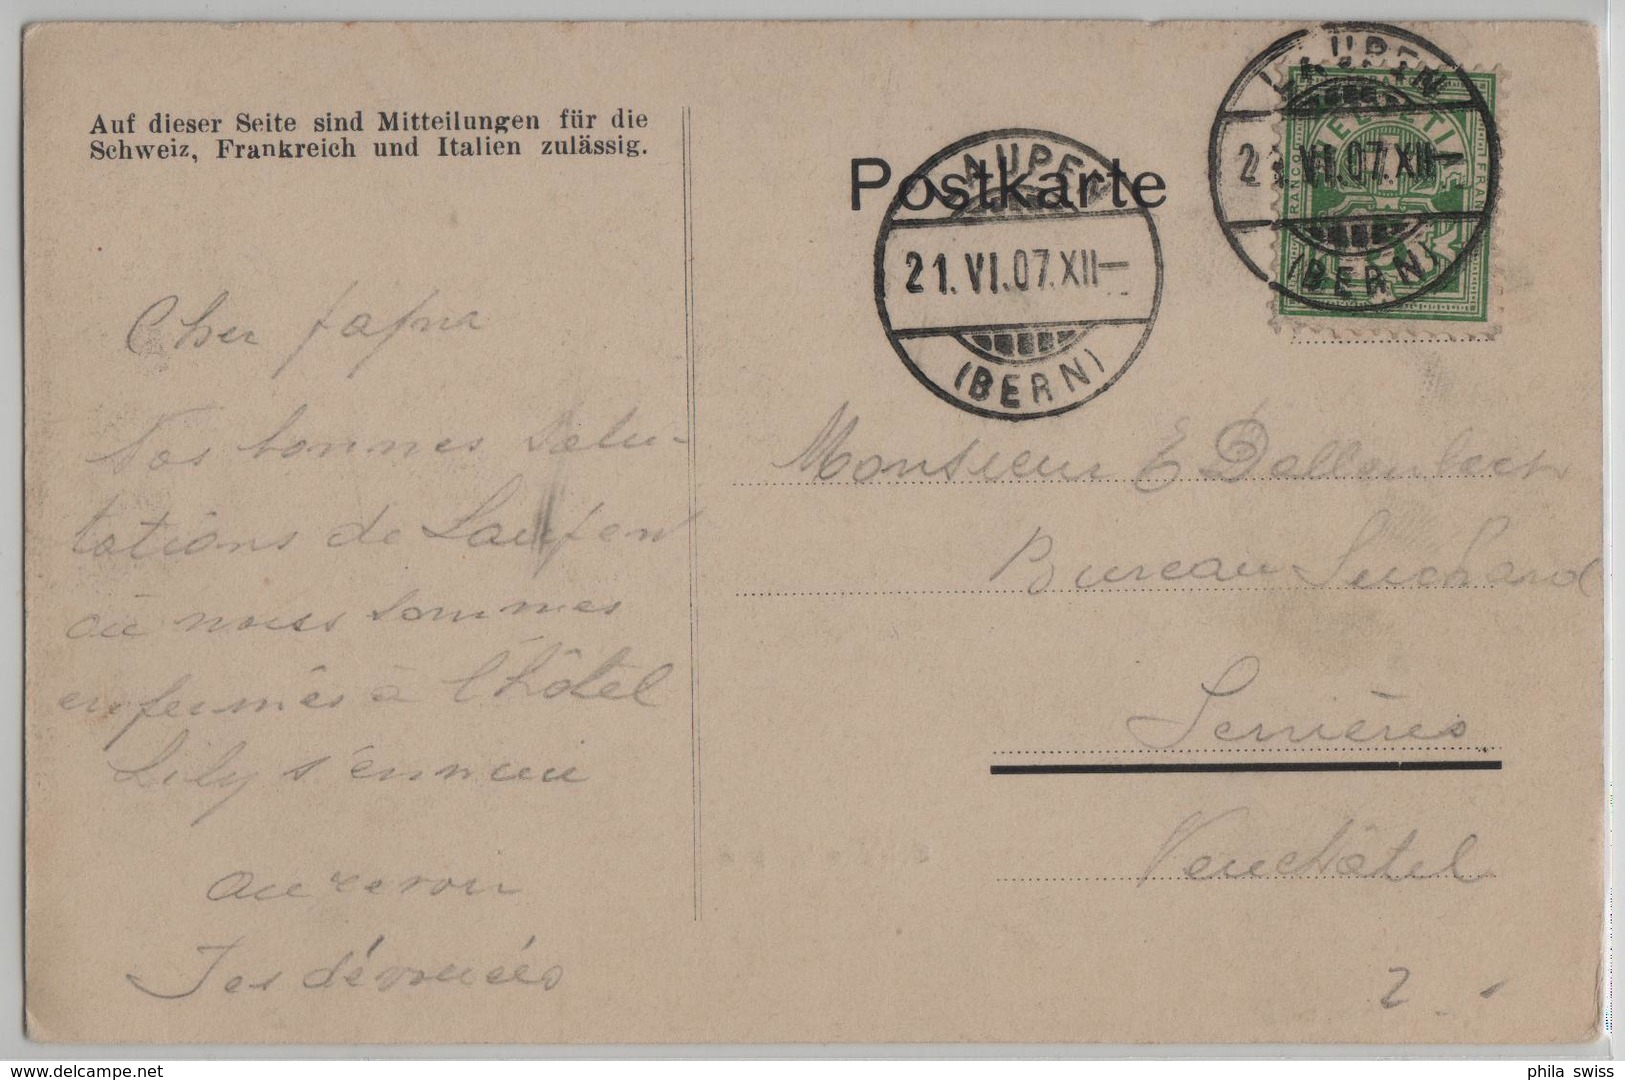 Auf dieser Seite sind Mitteilungen für die
Schweiz, Frankreich und Italien zulässig.
Postkarte
LAUPEN
21.VI.07.XII–
(BERN)
LAUPEN
21.VI.07.XII–
(BERN)
HELVETIA
FRANCO
FRANCO
Cher papa
Nos bonnes Salu-
tations de Laupen
où nous sommes
enfermés à l'hôtel
Lily s'ennuie
au revoir
Tes dévouées
Monsieur E Dallenbach
Bureau Suchard
Serrières
Neuchâtel
2.
phila swiss